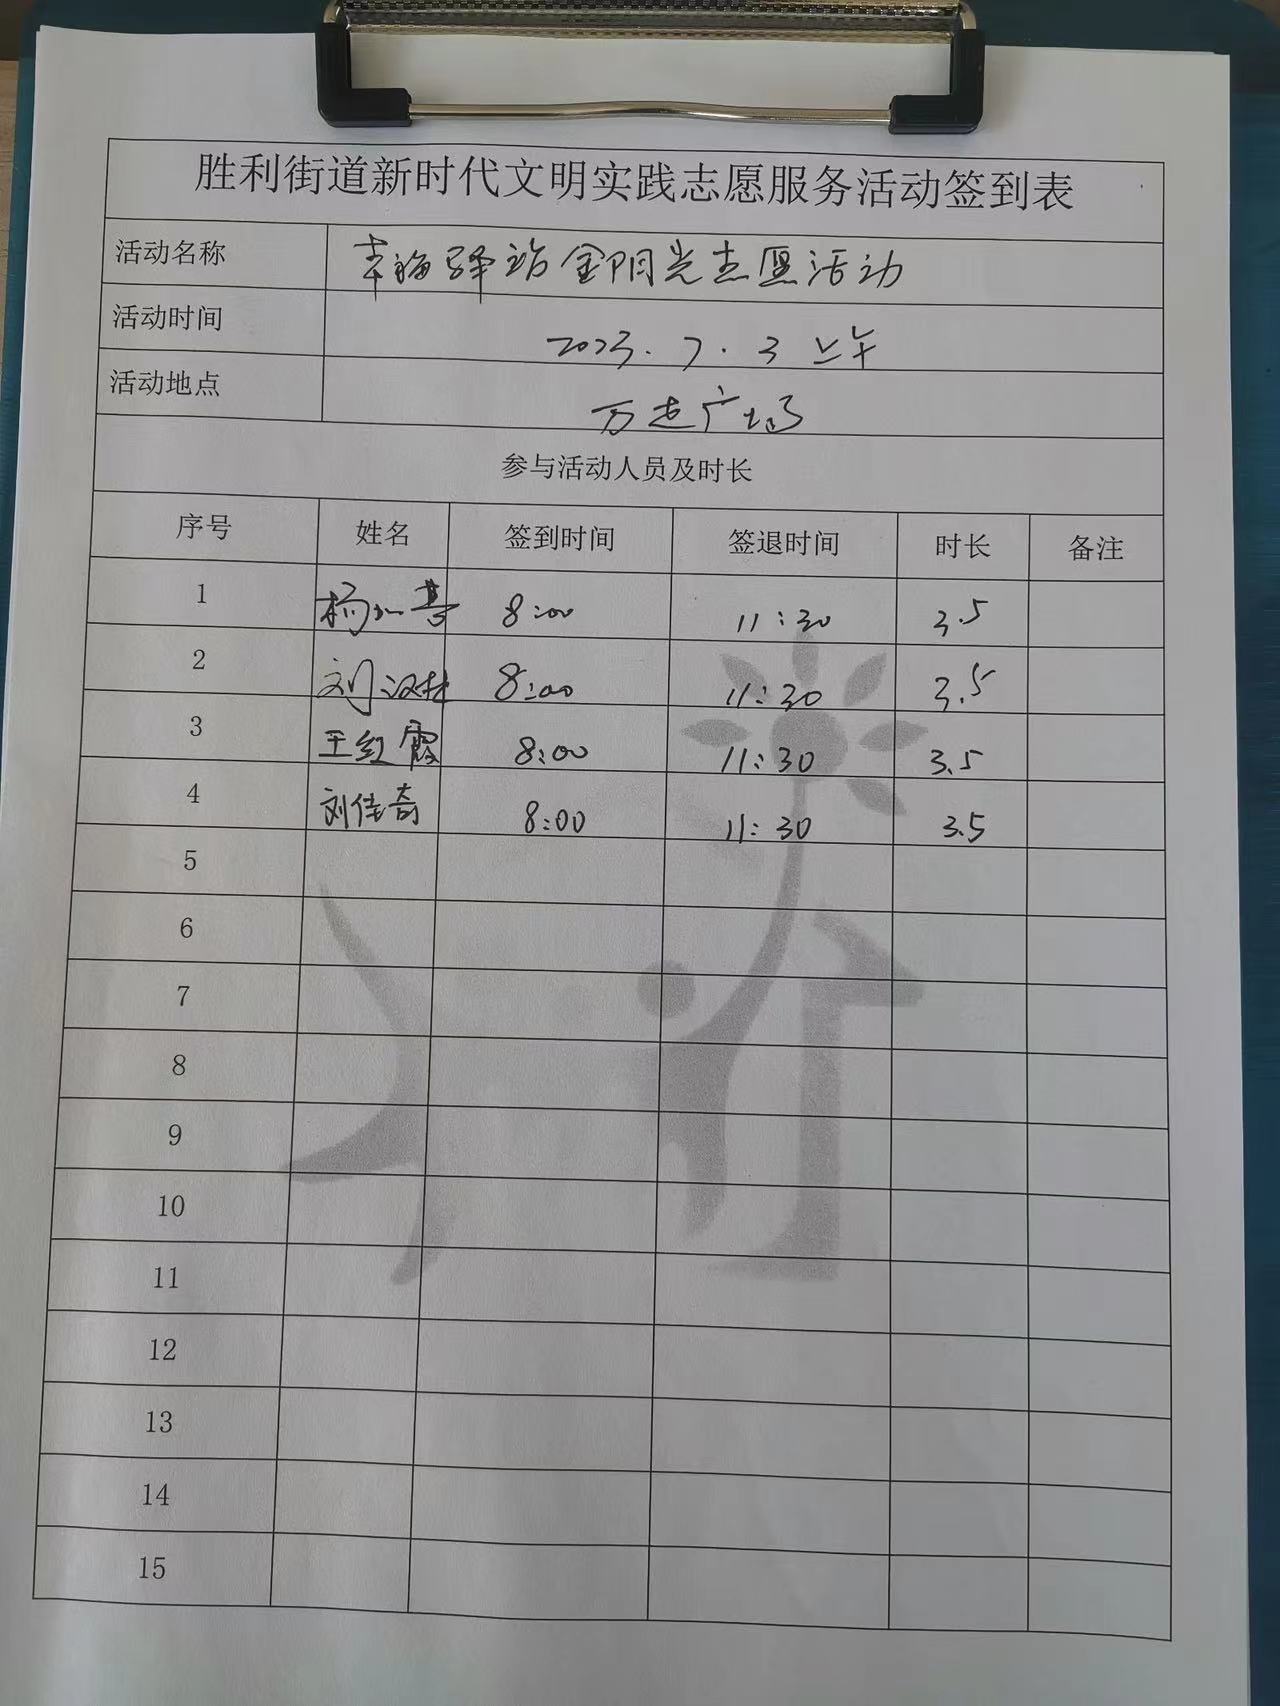 胜利街道新时代文明实践志愿服务活动签到表
活动名称 幸福驿站金阳光志愿活动
活动时间 2023.7.3 上午
活动地点 万达广场
参与活动人员及时长
序号 姓名 签到时间 签退时间 时长 备注
1 杨 8:00 11:30 3.5
2 刘汉林 8:00 11:30 3.5
3 王红霞 8:00 11:30 3.5
4 刘佳奇 8:00 11:30 3.5
5
6
7
8
9
10
11
12
13
14
15